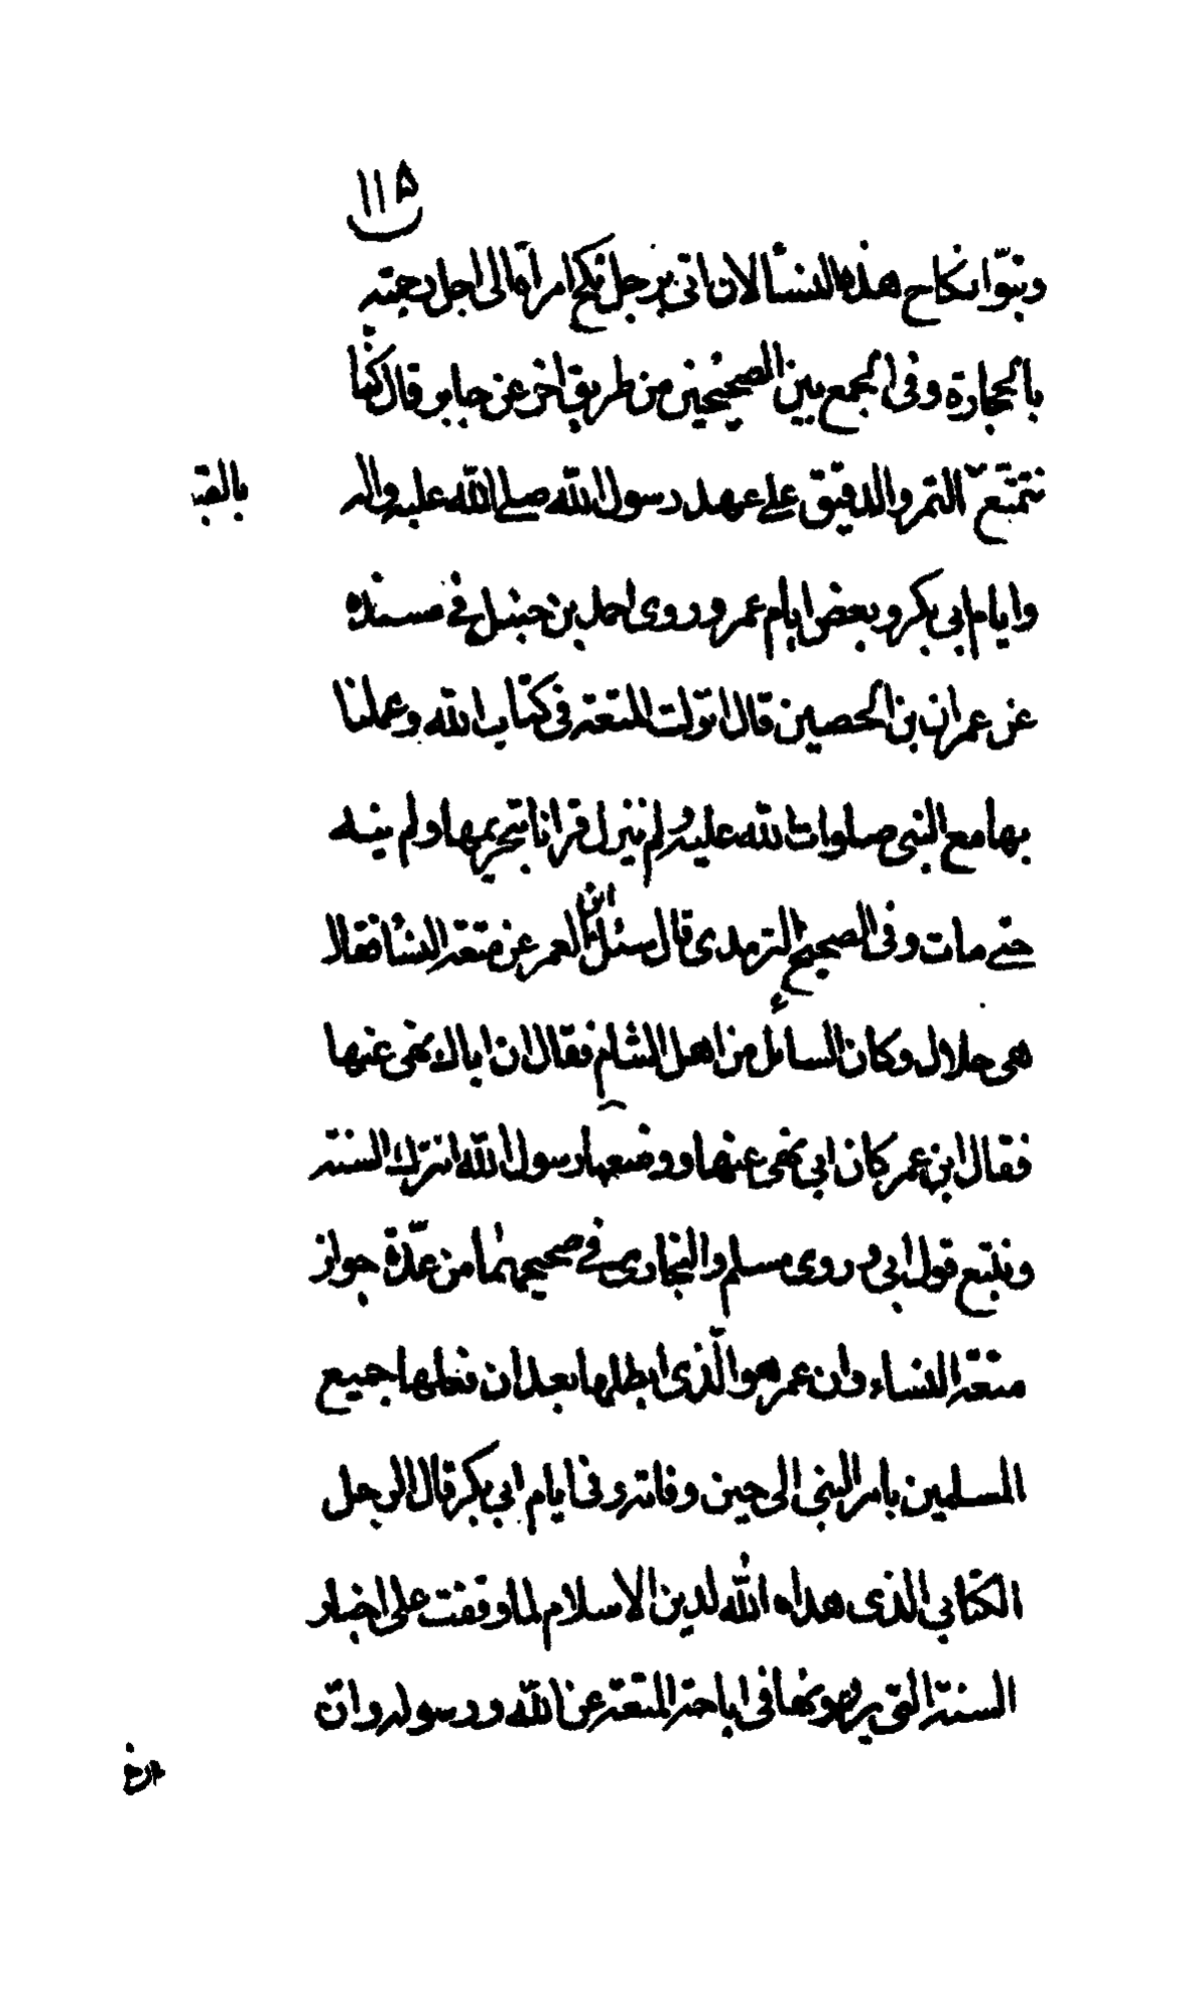 ١١٥
وبتوّا نكاح هذه النسأ لان اتى برجل نكح امرأة الى اجل رجمته
بالحجارة وفى الجمع بين الصحيحين من طريق اخر عن جابر قال كنّا
نتمتّع التمر والدقيق على عهد رسول الله صلى الله عليه واله
بالقبـ
وايام ابى بكر وبعض ايام عمر وروى احمد بن حنبل فى مسنده
عن عمران بن الحصين قال انزلت المتعة فى كتاب الله وعملنا
بها مع النبى صلوات الله عليه ولم ينزل قرانا بتحريمها ولم ينه
حتى مات وفى الصحيح الترمدى قال سئل ابن العمر عن متعة النسأ فقال
هى حلال وكان السائل من اهل الشام فقال ان اباك نهى عنها
فقال ابن عمر كان ابى نهى عنها ووضعها رسول الله انترك السنة
ونتبع قول ابى وروى مسلم والبخارى فى صحيحهما من عدّة جواز
متعة النساء وان عمر هو الّذى ابطلها بعد ان فعلها جميع
المسلمين بامر النبى الى حين وفاته وفى ايام ابى بكر قال الرجل
الكتابى الذى هداه الله لدين الاسلام لما وقفت على اخبار
السنة التى يروونها فى اباحة المتعة عن الله ورسوله وان